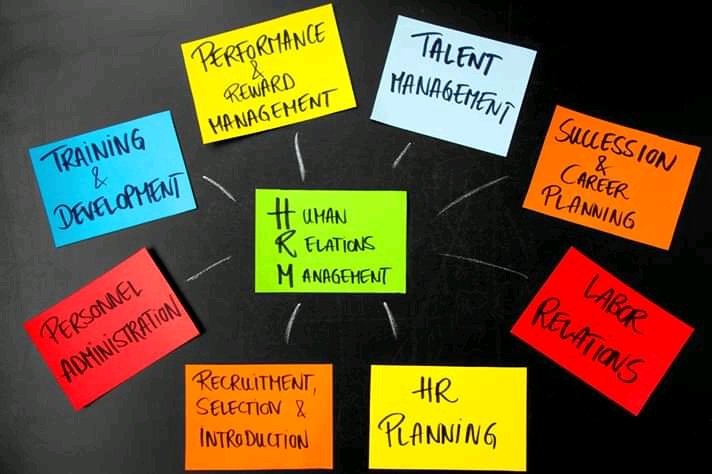 PERFORMANCE
&
REWARD
MANAGEMENT
TALENT
MANAGEMENT
TRAINING
&
DEVELOPMENT
SUCCESSION
&
CAREER
PLANNING
HUMAN
RELATIONS
MANAGEMENT
PERSONNEL
ADMINISTRATION
LABOR
RELATIONS
RECRUITMENT,
SELECTION &
INTRODUCTION
HR
PLANNING